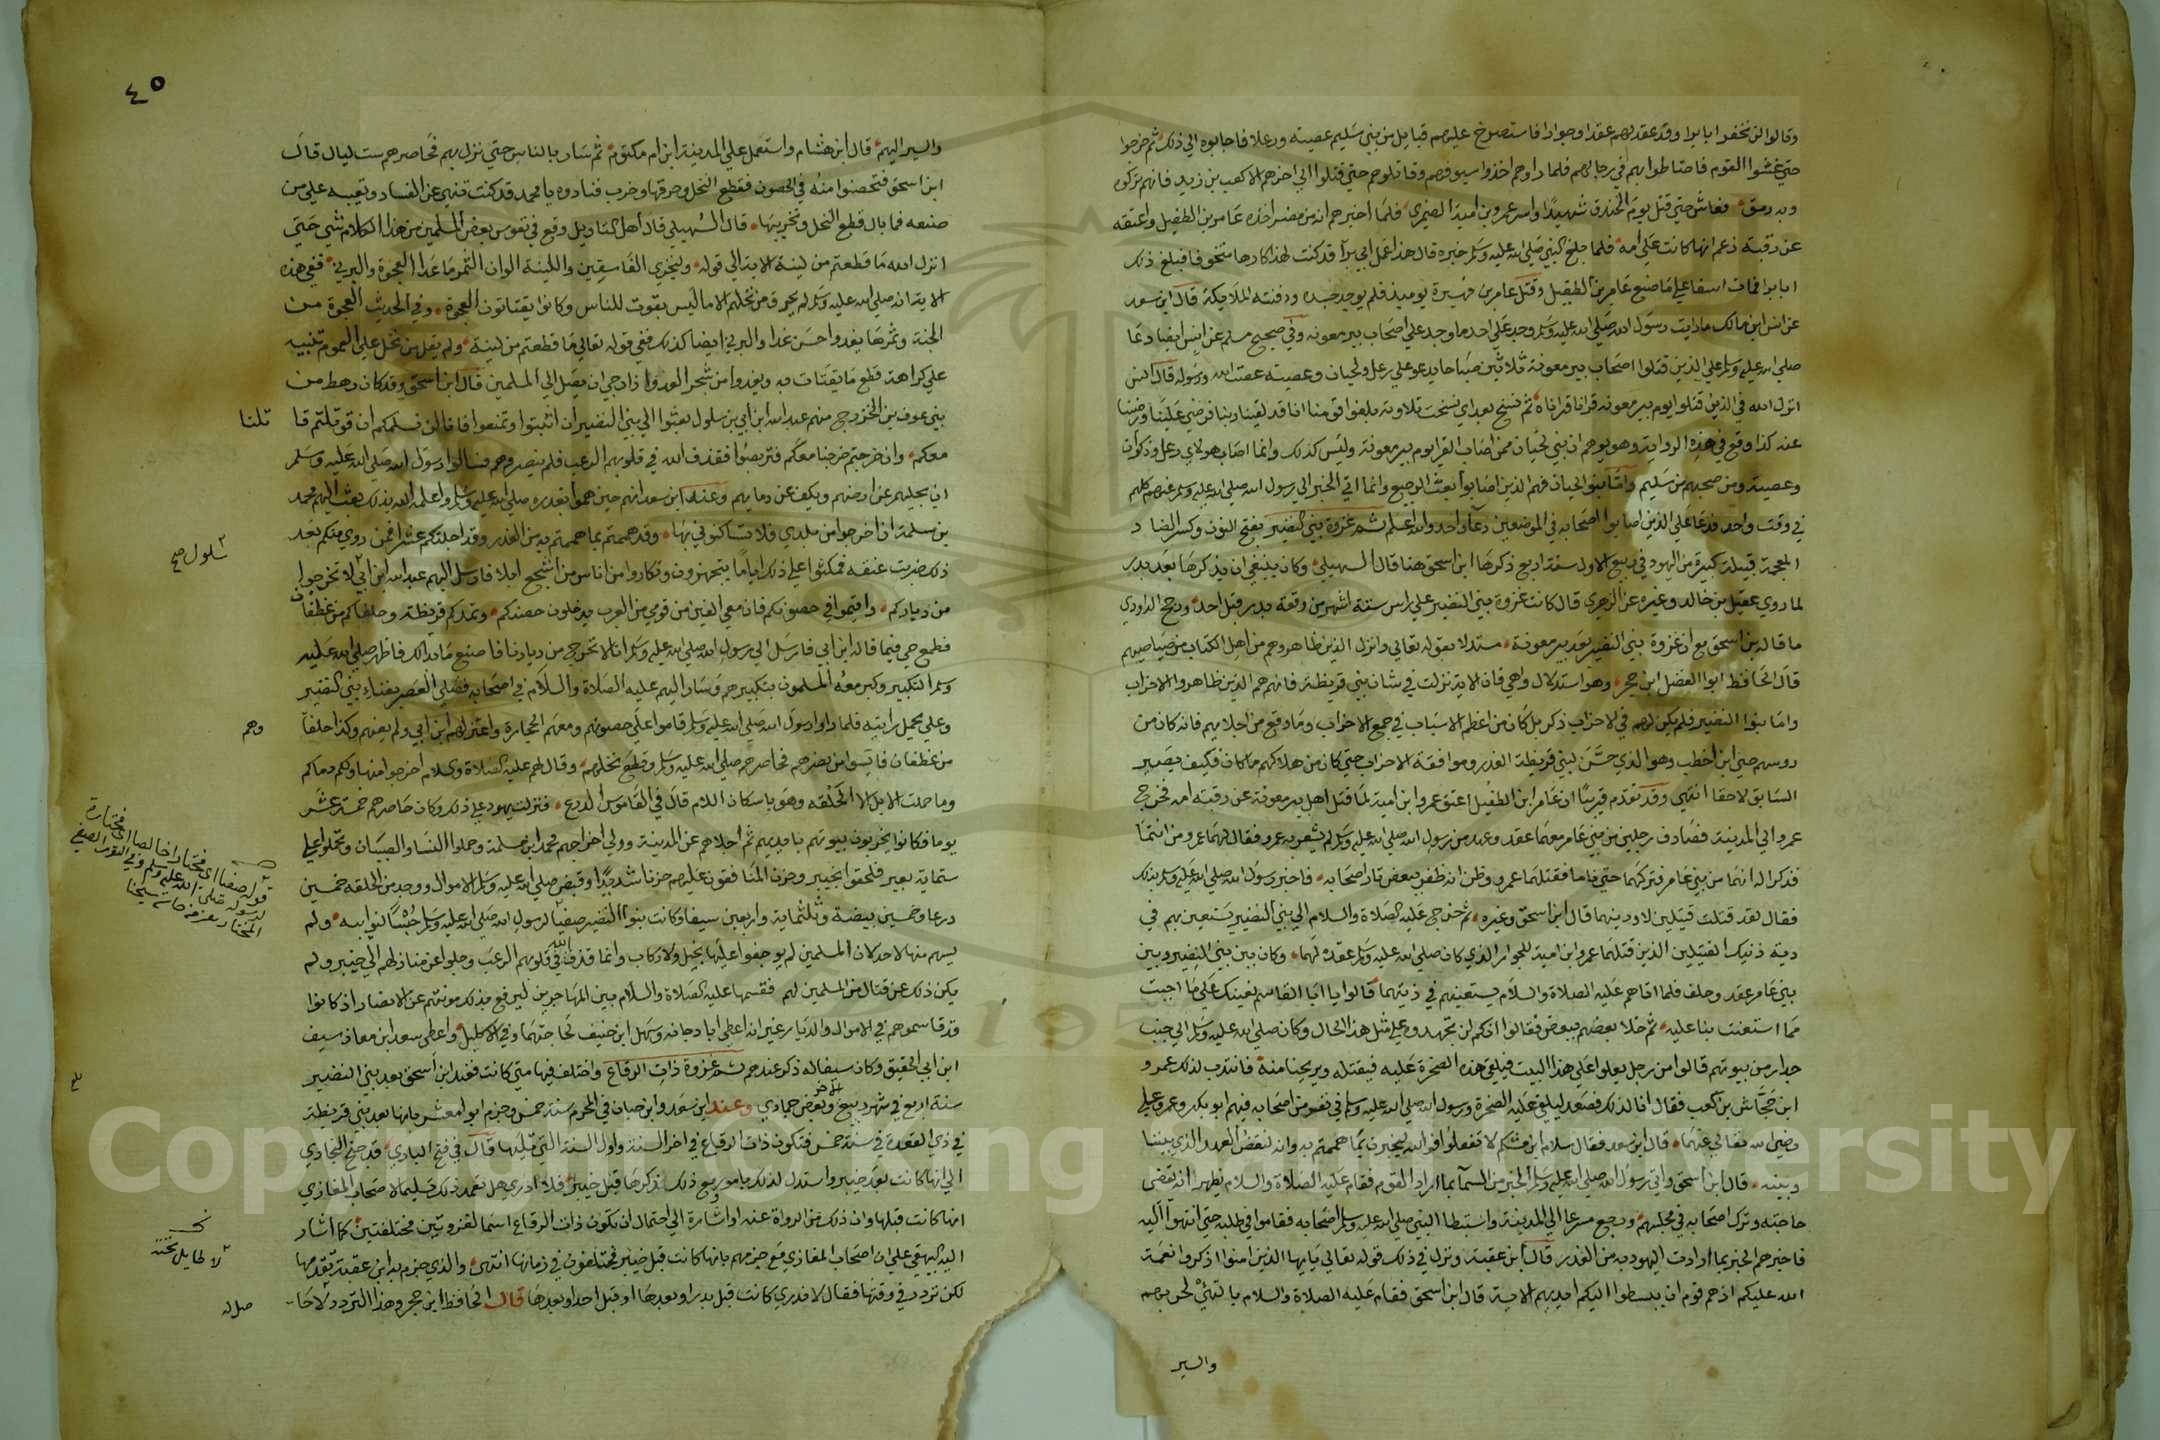 وقالوا لن نخفر ابا برا وقد عقد لهم عقدا وجوارا فاستصرخ عليهم قبايل من بني سليم عصية ورعلا فاجابوه الي ذلك ثم خرجوا
حتي غشوا القوم فاحاطوا بهم في رحالهم فلما راوهم اخذوا سيوفهم وقاتلوهم حتي قتلوا الي اخرهم الا كعب بن زيد فانهم تركوه
وبه رمق فعاش حتي قتل يوم الخندق شهيدا واسر عمرو بن امية الضمري فلما اخبرهم انه من مضر اخذه عامر بن الطفيل واعتقه
عن رقبة زعم انها كانت علي امه فلما بلغ النبي صلي الله عليه وسلم خبره قال هذا عمل ابي برآ قد كنت لهذا كارها متخوفا فبلغ ذلك
ابا برا فمات اسفا علي ما صنع عامر بن الطفيل وقتل عامر بن فهيرة يوميذ فلم يوجد جسده ودفنته الملايكة قال ابن سعد
عن انس ابن مالك ما رايت رسول الله صلي الله عليه وسلم وجد علي احد ما وجد علي اصحاب بير معونه وفي صحيح مسلم عن انس ايضا دعا
صلي الله عليه وسلم علي الذين قتلوا اصحاب بير معونة ثلاثين صباحا يدعو علي رعل ولحيان وعصية عصت الله ورسوله قال انس
انزل الله في الذين قتلوا يوم بير معونه قرانا قراناه ثم نسخ بعد اي نسخت تلاوته بلغوا قومنا انا قد لقينا ربنا فرضي عنا ورضينا
عنه كذا وقع في هذه الرواية وهو يوهم ان بني لحيان ممن اصاب القرا يوم بير معونة وليس كذلك وانما اصاب هولاي رعل وذكوان
وعصية ومن صحبهم من سليم واما بنو لحيان فهم الذين اصابوا بعث الرجيع وانما اتي الخبر الي رسول الله صلي الله عليه وسلم عنهم كلهم
في وقت واحد فدعا علي الذين اصابوا اصحابه في الموضعين دعآ واحد والله اعلم ثم غزوة بني النضير بفتح النون وكسر الضاد
المعجمة قبيلة كبيرة من اليهود في ربيع الاول سنة اربع ذكرها ابن اسحق هنا قال السهيلي وكان ينبغي ان يذكرها بعد بدر
لما روي عقيل بن خالد وغيره عن الزهري قال كانت غزوة بني النضير علي راس ستة اشهر من وقعة بدر قبل احد ورجح الداودي
ما قاله بن اسحق مع ان غزوة بني النضير بعد بير معونة مستدلا بقوله تعالي وانزل الذين ظاهروهم من اهل الكتاب من صياصيهم
قال الحافظ ابوا الفضل ابن حجر وهو استدلال واهي فان الاية نزلت في شان بني قريظة فانهم هم الذين ظاهروا الاحزاب
واما بنوا النضير فلم يكن لهم في الاحزاب ذكر بل كان من اعظم الاسباب في جمع الاحزاب وما وقع من اجلايهم فانه كان من
روسهم حيي ابن اخطب وهو الذي حسن لبني قريظة الغدر وموافقة الاحزاب حتي كان من هلاكهم ما كان فكيف يصير
السابق لاحقا انتهي وقد تقدم قريبا ان عامر ابن الطفيل اعتق عمرو ابن امية لما قتل اهل بير معونة عن رقبة امه فخرج
عمرو الي المدينة فصادف رجلين من بني عامر معهما عقد وعهد من رسول الله صلي الله عليه وسلم لم يشعر به عمرو فقال لهما عمرو من انتما
فذكرا له انهما من بني عامر فتركهما حتي ناما فقتلهما عمرو وظن انه ظفر ببعض ثار اصحابه فاخبر رسول الله صلي الله عليه وسلم بذلك
فقال لقد قتلت قتيلين لادينهما قال ابن اسحق وغيره ثم خرج عليه الصلاة والسلام الي بني النضير يستعين بهم في
دية ذنيك القتيلين الذين قتلهما عمرو ابن امية للجوار الذي كان صلي الله عليه وسلم عقده لهما وكان بين بني النضير وبين
بني عامر عقد وحلف فلما اتاهم عليه الصلاة والسلام يستعينهم في ديتهما قالوا يا ابا القاسم نعينك علي ما احببت
مما استعنت بنا عليه ثم خلا بعضهم ببعض فقالوا انكم لن تجدوه علي مثل هذا الحال وكان صلي الله عليه وسلم الي جنب
جدار من بيوتهم قالوا من رجل يعلوا علي هذا البيت فيلقي هذه الصخرة عليه فيقتله ويريحنا منه فانتدب لذلك عمرو
ابن جحاش بن كعب فقال انا لذلك فصعد ليلقي عليه الصخرة ورسول الله صلي الله عليه وسلم في نفر من اصحابه فيهم ابو بكر وعمر وعلي
رضي الله تعالي عنهما قال ابن سعد فقال سلام ابن مشكم لا تفعلوا فوالله ليخبرن بما هممتم به وانه لنقض العهد الذي بيننا
وبينه قال ابن اسحق واتي رسول الله صلي الله عليه وسلم الخبر من السمآ بما اراد القوم فقام عليه الصلاة والسلام يظهر انه يقضي
حاجته وترك اصحابه في مجلسهم ورجع مسرعا الي المدينة واستبطا النبي صلي الله عليه وسلم اصحابه فقاموا في طلبه حتي انتهوا اليه
فاخبرهم الخبر بما ارادت اليهود به من الغدر قال ابن عقبة ونزل في ذلك قوله تعالي يايها الذين امنوا اذكروا نعمة
الله عليكم اذ هم قوم ان يبسطوا اليكم ايديهم الاية قال ابن اسحق فقام عليه الصلاة والسلام بالتهيئ لحربهم
والسير
٤٥
والسير اليهم قال ابن هشام واستعمل علي المدينة ابن ام مكتوم ثم سار بالناس حتي نزل بهم فحاصرهم ست ليال قال
ابن اسحق فتحصنوا منه في الحصون فقطع النخل وحرقها وخرب فنادوه يا محمد قد كنت تنهي عن الفساد وتعيبه علي من
صنعه فما بال قطع النخل وتخريبها قال السهيلي قال اهل التاويل وقع في نفوس بعض المسلمين من هذا الكلام شي حتي
انزل الله ما قطعتم من لينة الاية الي قوله وليخزي الفاسقين واللينة الوان التمر ما عدا العجوة والبرني ففي هذه
الاية انه صلي الله عليه وسلم لم يحرق من نخلهم الا ما ليس بقوت للناس وكانوا يقتاتون العجوة وفي الحديث العجوة من
الجنة وثمرها يغدوا احسن غدا والبرني ايضا كذلك ففي قوله تعالي ما قطعتم من لينة ولم يقل من نخل علي العموم تنبيه
علي كراهة قطع ما يقتات به ويغدوا من شجر العدو اذا رجي ان يصل الي المسلمين قال ابن اسحق وقد كان رهط من
بني عوف بن الخزرج منهم عبد الله ابن ابي بن سلول بعثوا الي بني النضير ان اثبتوا وتمنعوا فانا لن نسلمكم ان قوتلتم قا تلنا
معكم وان خرجتم خرجنا معكم فتربصوا فقذف الله في قلوبهم الرعب فلم ينصروهم فسالوا رسول الله صلي الله عليه وسلم
ان يجليهم عن ارضهم ويكف عن دمايهم وعند ابن سعد انهم حين هموا بغدره صلي الله عليه وسلم واعلمه الله بذلك بعث اليهم محمد
بن مسلمة ان اخرجوا من بلدي فلا تساكنوني بها وقد هممتم بما هممتم به من الغدر وقد اجلتكم عشرا فمن روي منكم بعد
ذلك ضربت عنقه فمكثوا علي ذلك اياما يتجهزون وتكاروا من اناس من اشجع ابلا فارسل اليهم عبد الله ابن ابي لا تخرجوا
سلول صح
من دياركم واقيموا في حصونكم فان معي الفين من قومي من العرب يدخلون حصنكم وتمدكم قريظة وحلفاكم من غطفان
فطمع حيي فيما قاله ابن ابي فارسل الي رسول الله صلي الله عليه وسلم انا لا نخرج من ديارنا فاصنع ما بدا لك فاظهر صلي الله عليه
وسلم التكبير وكبر معه المسلمون بتكبيرهم وسار اليهم عليه الصلاة والسلام في اصحابه فصلي العصر بفناء بني النضير
وعلي يحمل رايته فلما راوا رسول الله صلي الله عليه وسلم قاموا علي حصونهم ومعهم الحجارة واعتزلهم ابن ابي ولم يعنهم وكذا حلفا
وهم
من غطفان فايسوا من نصرهم فحاصرهم صلي الله عليه وسلم وقطع نخلهم وقال لهم عليه الصلاة والسلام اخرجوا منها ولكم دماكم
وما حملت الابل الا الحلقه وهو باسكان اللام قال في القاموس الدرع فنزلت يهود علي ذلك وكان حاصرهم خمسة عشر
يوما فكانوا يخربون بيوتهم بايديهم ثم اجلاهم عن المدينة وولي اخراجهم محمد ابن مسلمة وحملوا النسا والصبيان وتحملوا علي
ستماية بعير فلحقوا بخيبر وحزن المنافقون عليهم حزنا شديدا وقبض صلي الله عليه وسلم الاموال ووجد من الحلقه خمسين
درعا وخمسين بيضة وثلثماية واربعين سيفا وكانت بنوا النضير صفيا لرسول الله صلي الله عليه وسلم حبسا لنوايبه ولم
يسهم منها لاحد لان المسلمين لم يوجفوا عليها بخيل ولا ركاب وانما قذف الله في قلوبهم الرعب وجلوا عن منازلهم الي خيبر ولم
يكن ذلك عن قتال من المسلمين لهم فقسمها عليه الصلاة والسلام بين المهاجرين ليرفع بذلك مونتهم عن الانصار اذ كانوا
قد قاسموهم في الاموال والديار غير انه اعطي ابا دجانه وسهل ابن حنيف لحاجتهما وفي الاكليل واعطي سعد ابن معاذ سيف
ابن ابي الحقيق وكان سيفا له ذكر عندهم ثم غزوة ذات الرقاع واختلف فيها متي كانت فعند ابن اسحق بعد بني النضير
سنة اربع في شهر ربيع الاخر وبعض جمادي وعند ابن سعد وابن حبان في المحرم سنة خمس وجزم ابوا معشر بانها بعد بني قريظة
في ذي القعدة في سنة خمس فتكون ذات الرقاع في اخر السنة واول السنة التي تليها قال في فتح الباري قد جنح البخاري
الي انها كانت بعد خيبر واستدل لذلك بامور ومع ذلك ذكرها قبل خيبر فلا ادري هل تعمد ذلك تسليما لاصحاب المغازي
انها كانت قبلها وان ذلك من الرواة عنه او اشارة الي احتمال ان تكون ذات الرقاع اسما لغزوتين مختلفتين كما اشار
اليه البيهقي علي ان اصحاب المغازي مع جزمهم بانها كانت قبل خيبر مختلفون في زمانها انتهي والذي جزم به ابن عقبة تقدمها
لكن تردد في وقتها فقال لا ندري كانت قبل بدر او بعدها او قبل احد او بعدها قال الحافظ ابن حجر وهذا التردد لا حا-
صل له
Copyright © King Saud University